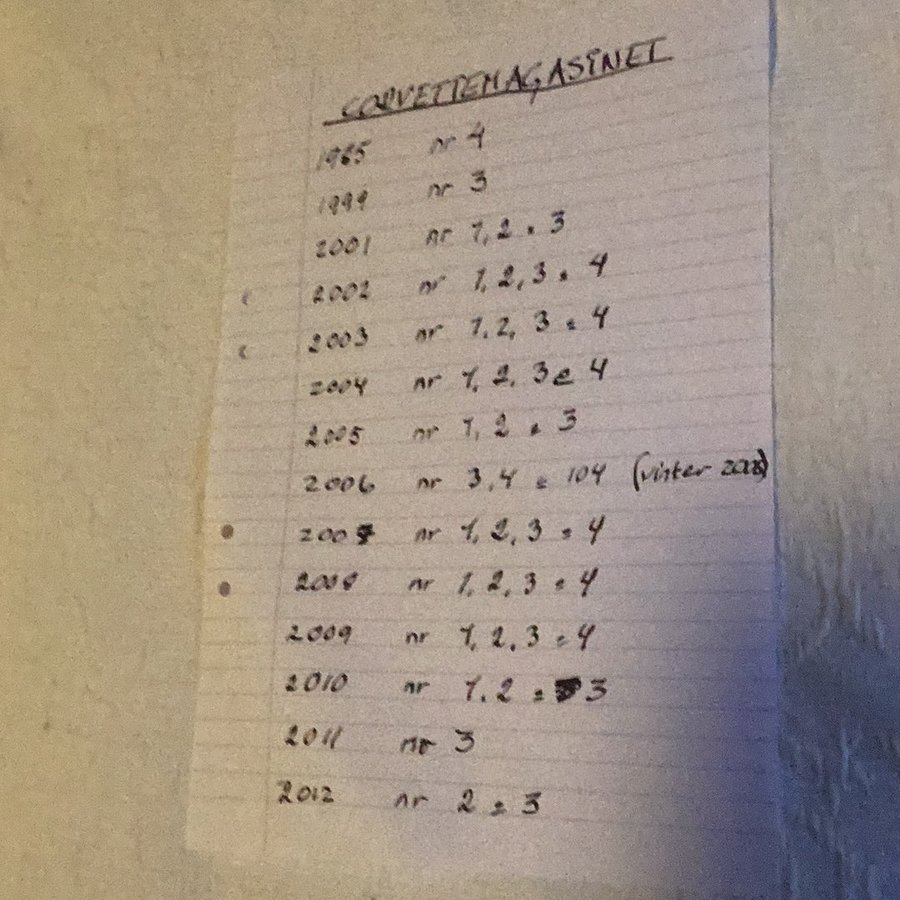 CORVETTEMAGASINET
1985 nr 4
1999 nr 3
2001 nr 1, 2 & 3
2002 nr 1, 2, 3 & 4
2003 nr 1, 2, 3 & 4
2004 nr 1, 2, 3 & 4
2005 nr 1, 2 & 3
2006 nr 3, 4 & 104 (vinter
2007 nr 1, 2, 3 & 4
2008 nr 1, 2, 3 & 4
2009 nr 1, 2, 3 & 4
2010 nr 1, 2 & 3
2011 nr 3
2012 nr 2 & 3